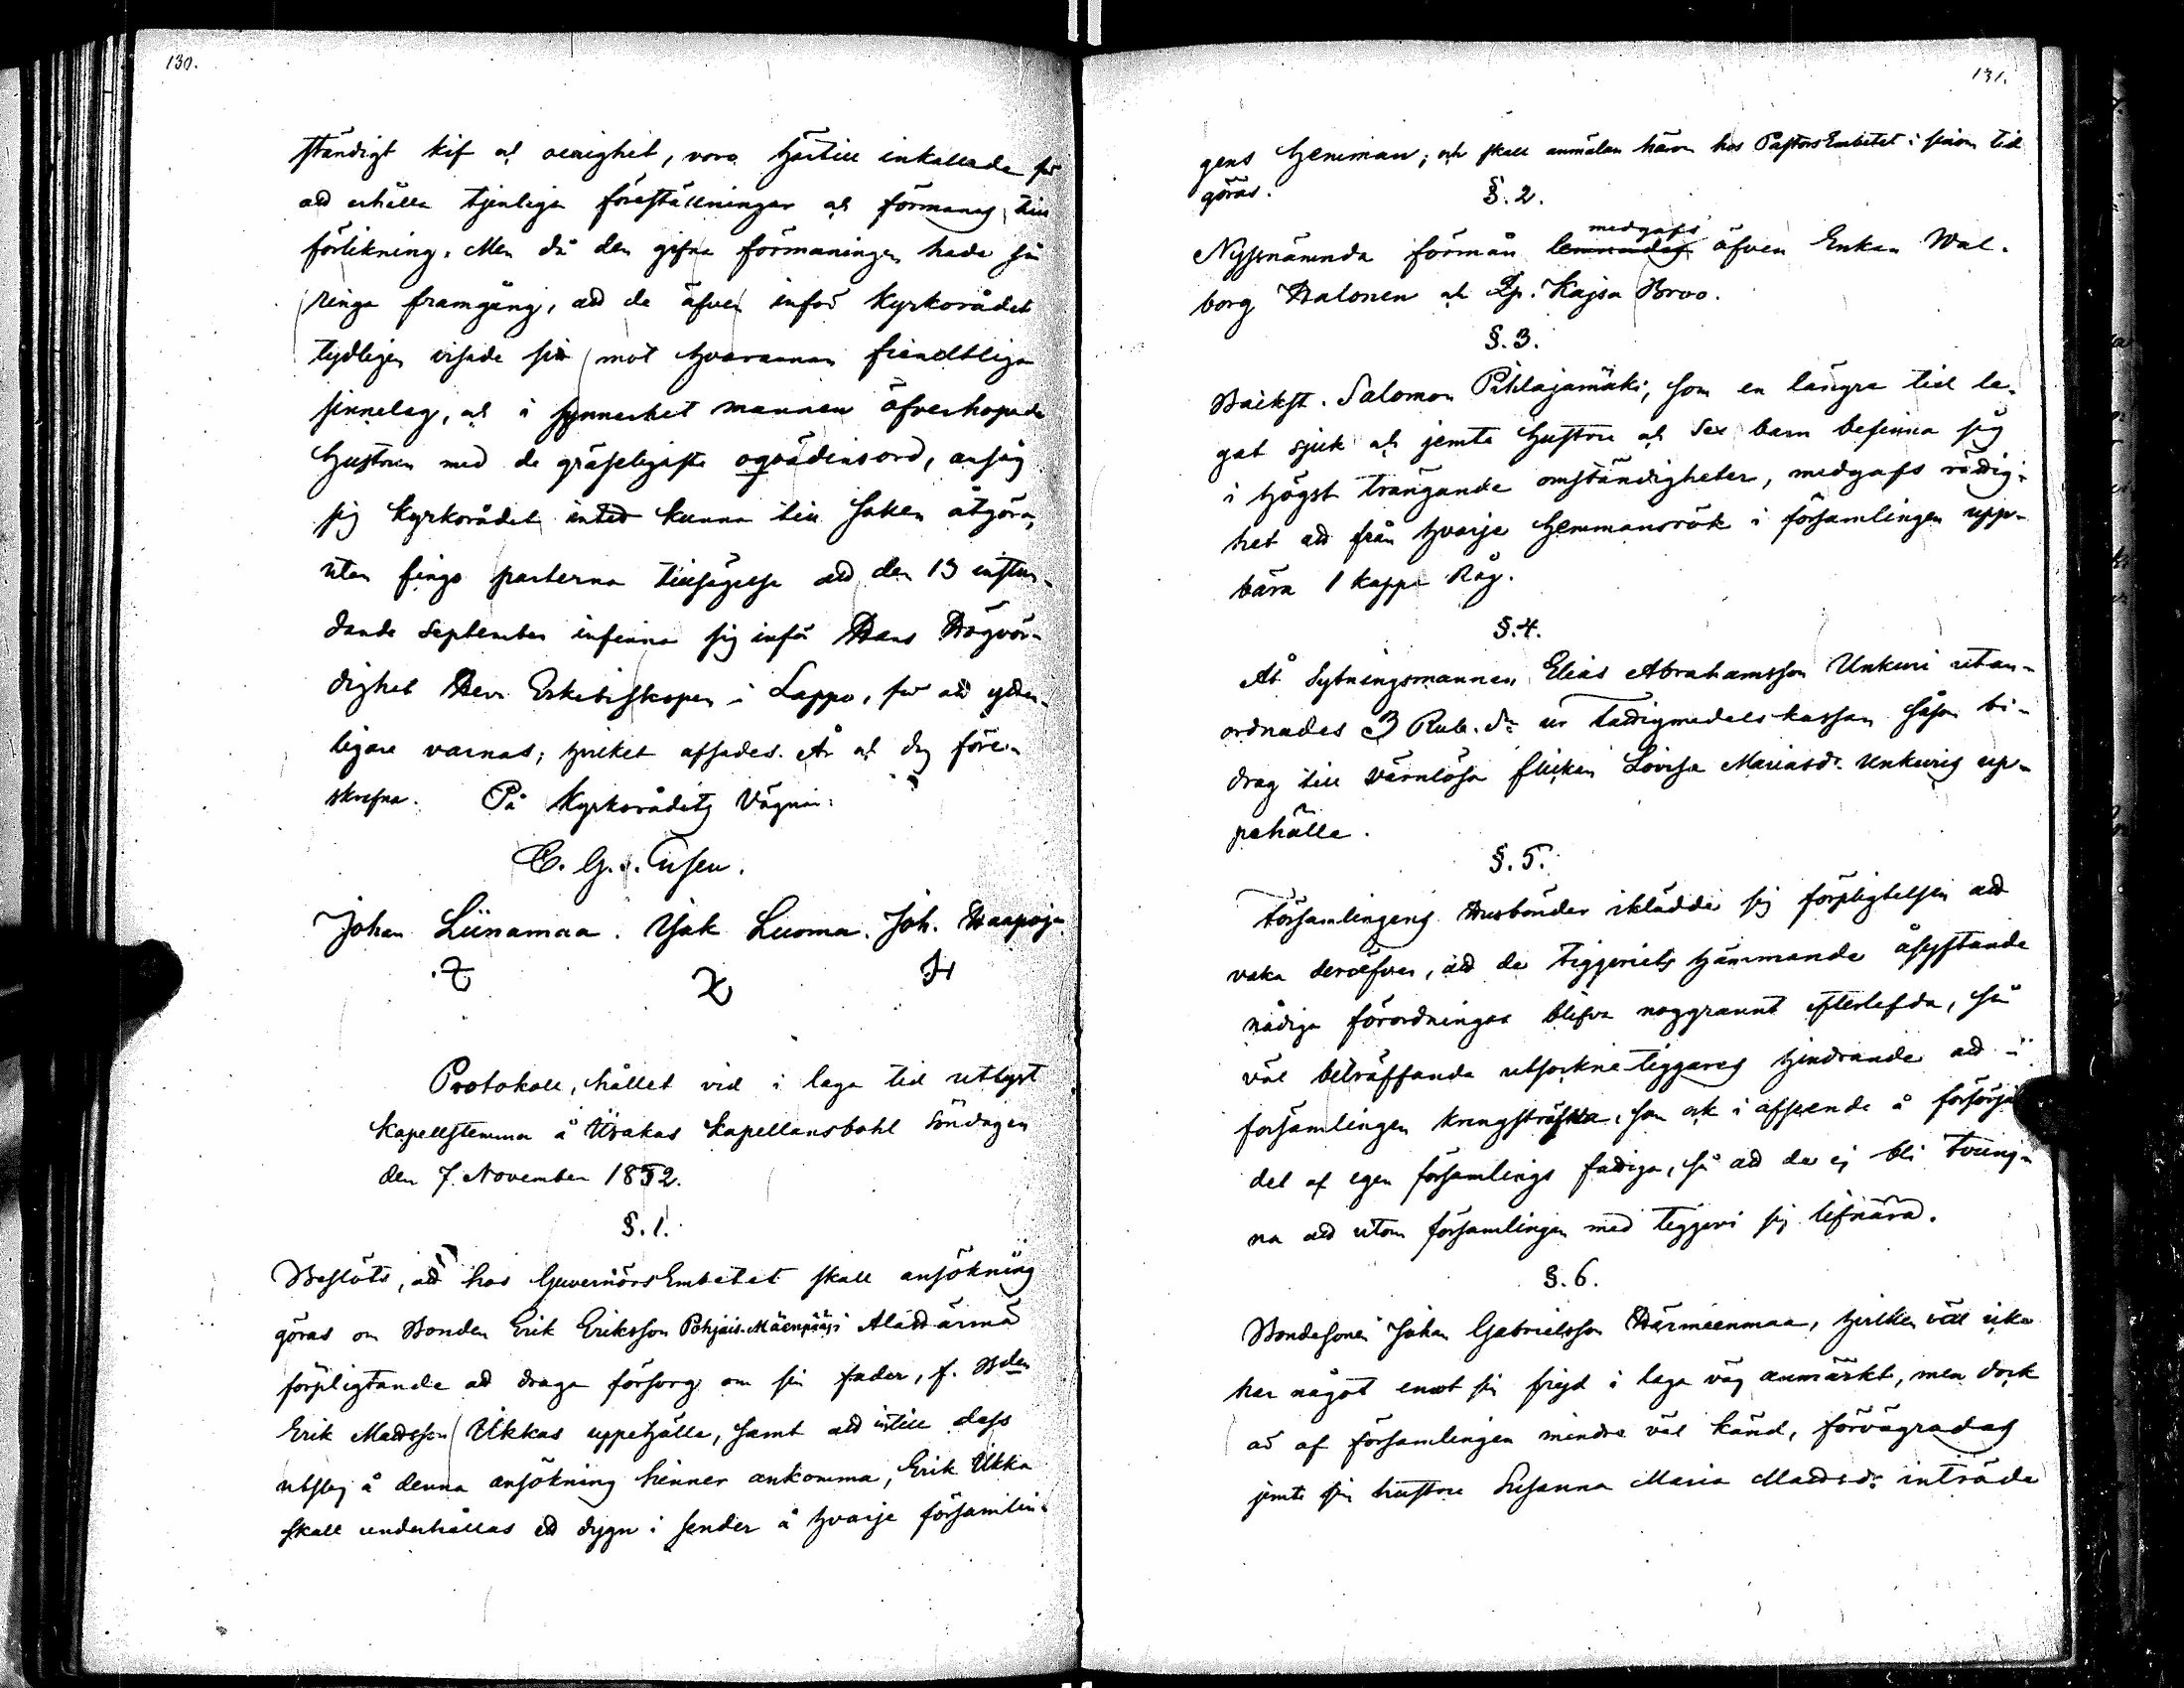 130.
ständigt kif och oenighet, voro härtill inkallade för
att erhålla tjenliga föreställningar och förmanas till
förlikning. Men då den gifna förmaningen hade så
ringa framgång, att de äfven inför Kyrkorådet
tydligen visade sin mot hvarannan fiendtliga
sinnelag, och i synnerhet mannen öfverhopade
hustrun med de gräseligaste oqvädinsord, ansåg
sig Kyrkorådet intet kunna till saken åtgöra,
utan fingo parterna tillsägelse att den 13 instun-
dande September infinna sig inför Hans Högvör-
dighet Herr Erkebiskopen i Lappo, för att ytter-
ligare varnas; hvilket afsades. År och dag före-
skrefna. På Kyrkorådets vägnar:
C. G. Tusen.
Johan Liinamaa. Isak Luoma. Joh. Haapoja
Protokoll, hållet vid i laga tid utlyst
Kapellstemma å Ürakas Kapellansbohl Söndagen
den 7. November 1852.
§. 1.
Beslöts, att hos Guvernörs Embetet skall ansökning
göras om Bonden Erik Eriksson Pohjais-Mäenpääs i Alahärmä
förpligtande att draga försorg om sin fader, f. Bden
Erik Mattsson Ukkas uppehälle, samt att intill dess
utslag å denna ansökning hinner ankomma, Erik Ukka
skall underhållas ett dygn i sender å hvarje församlin-
131.
gens hemman; och skall anmälan härom hos PastorsEmbetet i sinom tid
göras.
§. 2.
medgafs
Nyssnämnda förmån lemnades äfven Enkan Wal-
borg Halonen och Qp. Kajsa Broo.
§. 3.
Backst. Salomon Pihlajamäki, som en längre tid le-
gat sjuk och jemte hustru och sex barn befinna sig
i högst trängande omständigheter, medgafs rättig-
het att från hvarje hemmansrök i församlingen upp-
bära 1 kappe Råg.
§. 4.
Åt Sytningsmannen Elias Abrahamsson Unkuri utan-
ordnades 3 Rub. Sr ur fattigmedelskassan såsom bi-
drag till värnlösa flickan Lovisa Mariasdr. Unkuris up-
pehälle.
§. 5.
Församlingens Husbönder iklädde sig förpligtelsen att
vaka deröfver, att de tiggeriets hämmande åsyftande
nådiga förordningar blifva noggrannt efterlefda, så
väl beträffande utsockne tiggares hindrande att i
församlingen kringstryka, som ock i afseende å försörjan-
det af egen församlings fattiga, så att de ej bli tvung-
na att utom församlingen med tiggeri sig lifnära.
§. 6.
Bondesonen Johan Gabrielsson Härmeenmaa, hvilken väl icke
har något emot sin frejd i laga väg anmärkt, men dock
är af församlingen mindre väl känd, förvägrades
jemte sin hustru Susanna Maria Mattsdr inträde